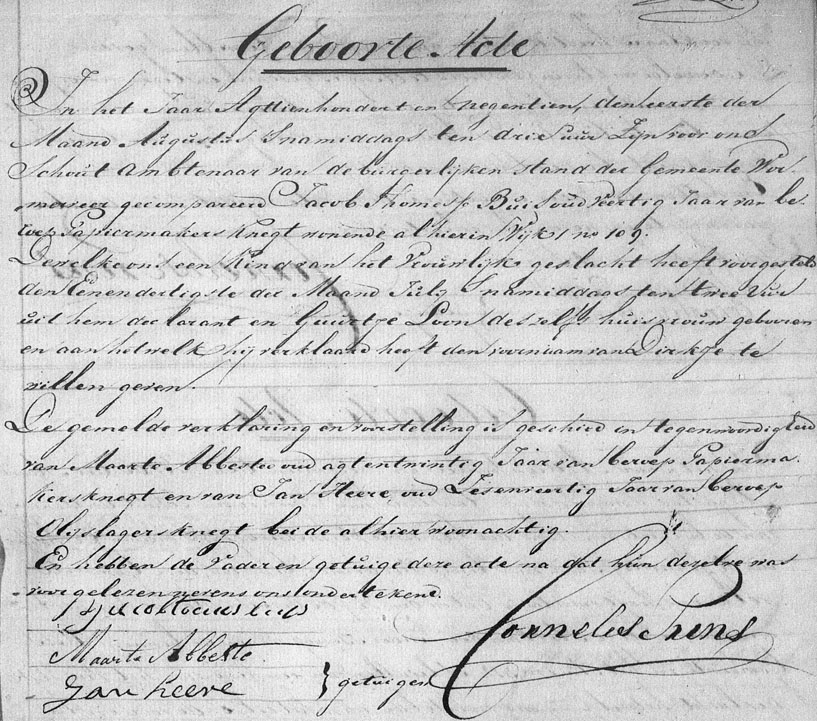 Geboorte Acte
In het Jaar Agttienhondert en negentien, den eerste der
Maand Augustus Snamiddags ten drie uur Zijn voor ons
Schout Ambtenaar van de burgerlijken stand der Gemeente Wor-
merveer gecompareerd Jacob Thomasz Buis oud veertig Jaar van be-
roep Papiermakers knegt wonende alhier in Wijk 1 no 109.
Dewelke ons een Kind van het Vrouwlijk geslacht heeft voorgesteld
den Eenendertigste der Maand July Snamiddags ten twee Uur
uit hem declarant en Guurtje Loon deszelfs huisvrouw gebooren
en aan hetwelk hij verklaard heeft den voornaam van Dirkje te
willen geven.
De gemelde verklaring en voorstelling is geschied in tegenwoordigheid
van Maarte Abbeste oud agtentwintig Jaar van beroep Papierma-
kersknegt en van Jan Heere, oud Zesenveertig Jaar van beroep
Olijslagersknegt beide alhier woonachtig.
En hebben de Vader en getuige deze acte na dat hun dezelve was
voorgelezen nevens ons ondertekend.
Maarte Abbeste
Jan heere } getuigen
Cornelis